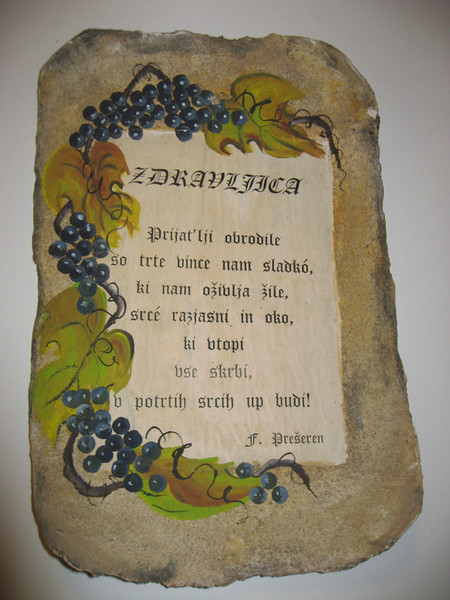 ZDRAVLJICA
Prijat'lji obrodile
so trte vince nam sladkó,
ki nam oživlja žile,
srcé razjasni in oko,
ki vtopi
vse skrbi,
v potrtih srcih up budi!
F. Prešeren